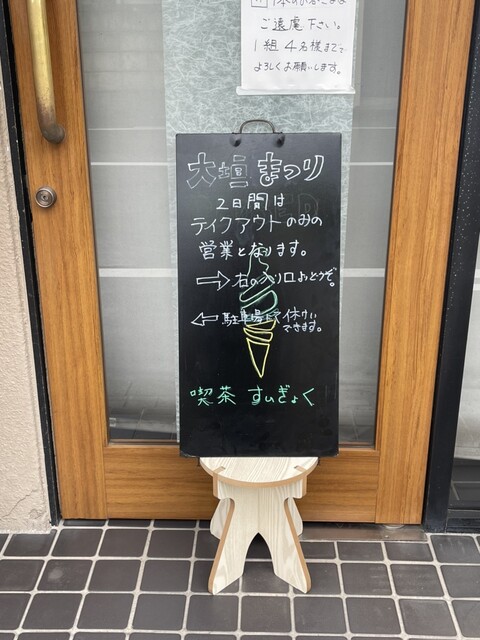 ご遠慮下さい。
1組 4名様まで
よろしくお願いします。
大垣まつり
2日間は
テイクアウトのみの
営業となります。
⇒ 右の入り口おどうぞ。
⇐ 駐車場にて休けい
できます。
喫茶 すいぎょく